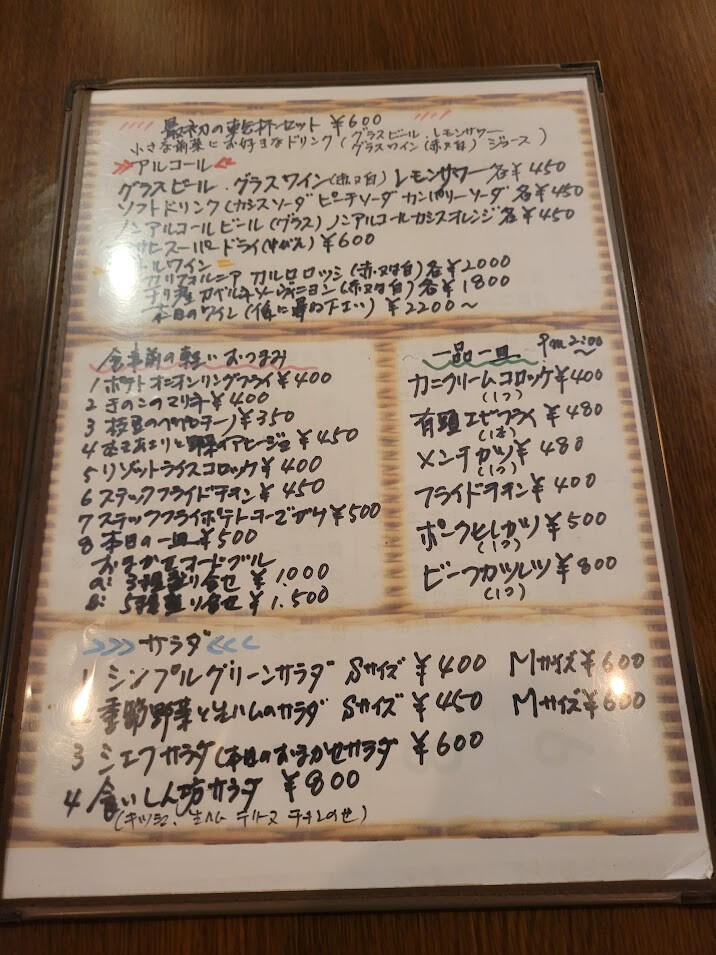 最初の乾杯セット ¥600
小さな前菜にお好きなドリンク(グラスビール・レモンサワー
グラスワイン(赤又白) ジュース)
アルコール
グラスビール・グラスワイン(赤又白) レモンサワー 各¥450
ソフトドリンク(カシスソーダ ピーチソーダ カンパリーソーダ 各¥450
ノンアルコールビール(グラス) ノンアルコールカシスオレンジ 各¥450
スーパードライ ¥600
ワイン
カリフォルニア カルロロッシ(赤又は白)各¥2000
チリ産 カベルネソーヴィニヨン(赤又白)各¥1800
本日のワイン ¥2200〜
食事前の軽いおつまみ
1 ポテトオニオンリングフライ¥400
2 きのこのマリネ¥400
3 枝豆のペペロンチーノ¥350
4 と野菜のアヒージョ¥450
5 リゾットライスコロッケ¥400
6 スティックフライドチキン¥450
7 スティックフライポテトチーズ ¥500
8 本日の一皿¥500
おまかせオードブル
a: 3種盛り合せ ¥1,000
b: 5種盛り合せ ¥1,500
一品一皿 Pm2:00〜
カニクリームコロッケ¥400
(1コ)
有頭エビフライ¥480
(1本)
メンチカツ¥480
(1コ)
フライドチキン¥400
ポークヒレカツ¥500
(1コ)
ビーフカツレツ¥800
(1コ)
サラダ
1 シンプルグリーンサラダ Sサイズ ¥400 Mサイズ¥600
2 季節野菜と生ハムのサラダ Sサイズ ¥450 Mサイズ¥600
3 シェフサラダ(本日のおまかせサラダ ¥600
4 食いしん坊サラダ ¥800
(キッシュ、生ハム テリーヌ チキンのせ)